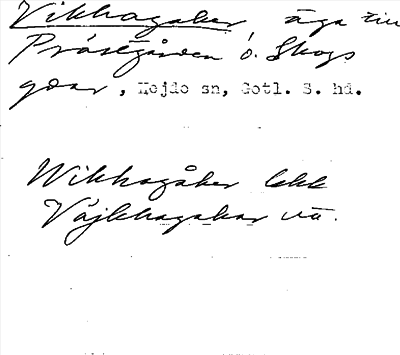 Vikhagaker äga till
Prästgården ö. Skogs
gdar, Hejde sn, Gotl. S. hd.
Wikhagåker lekk
Väjkhagakar vä.